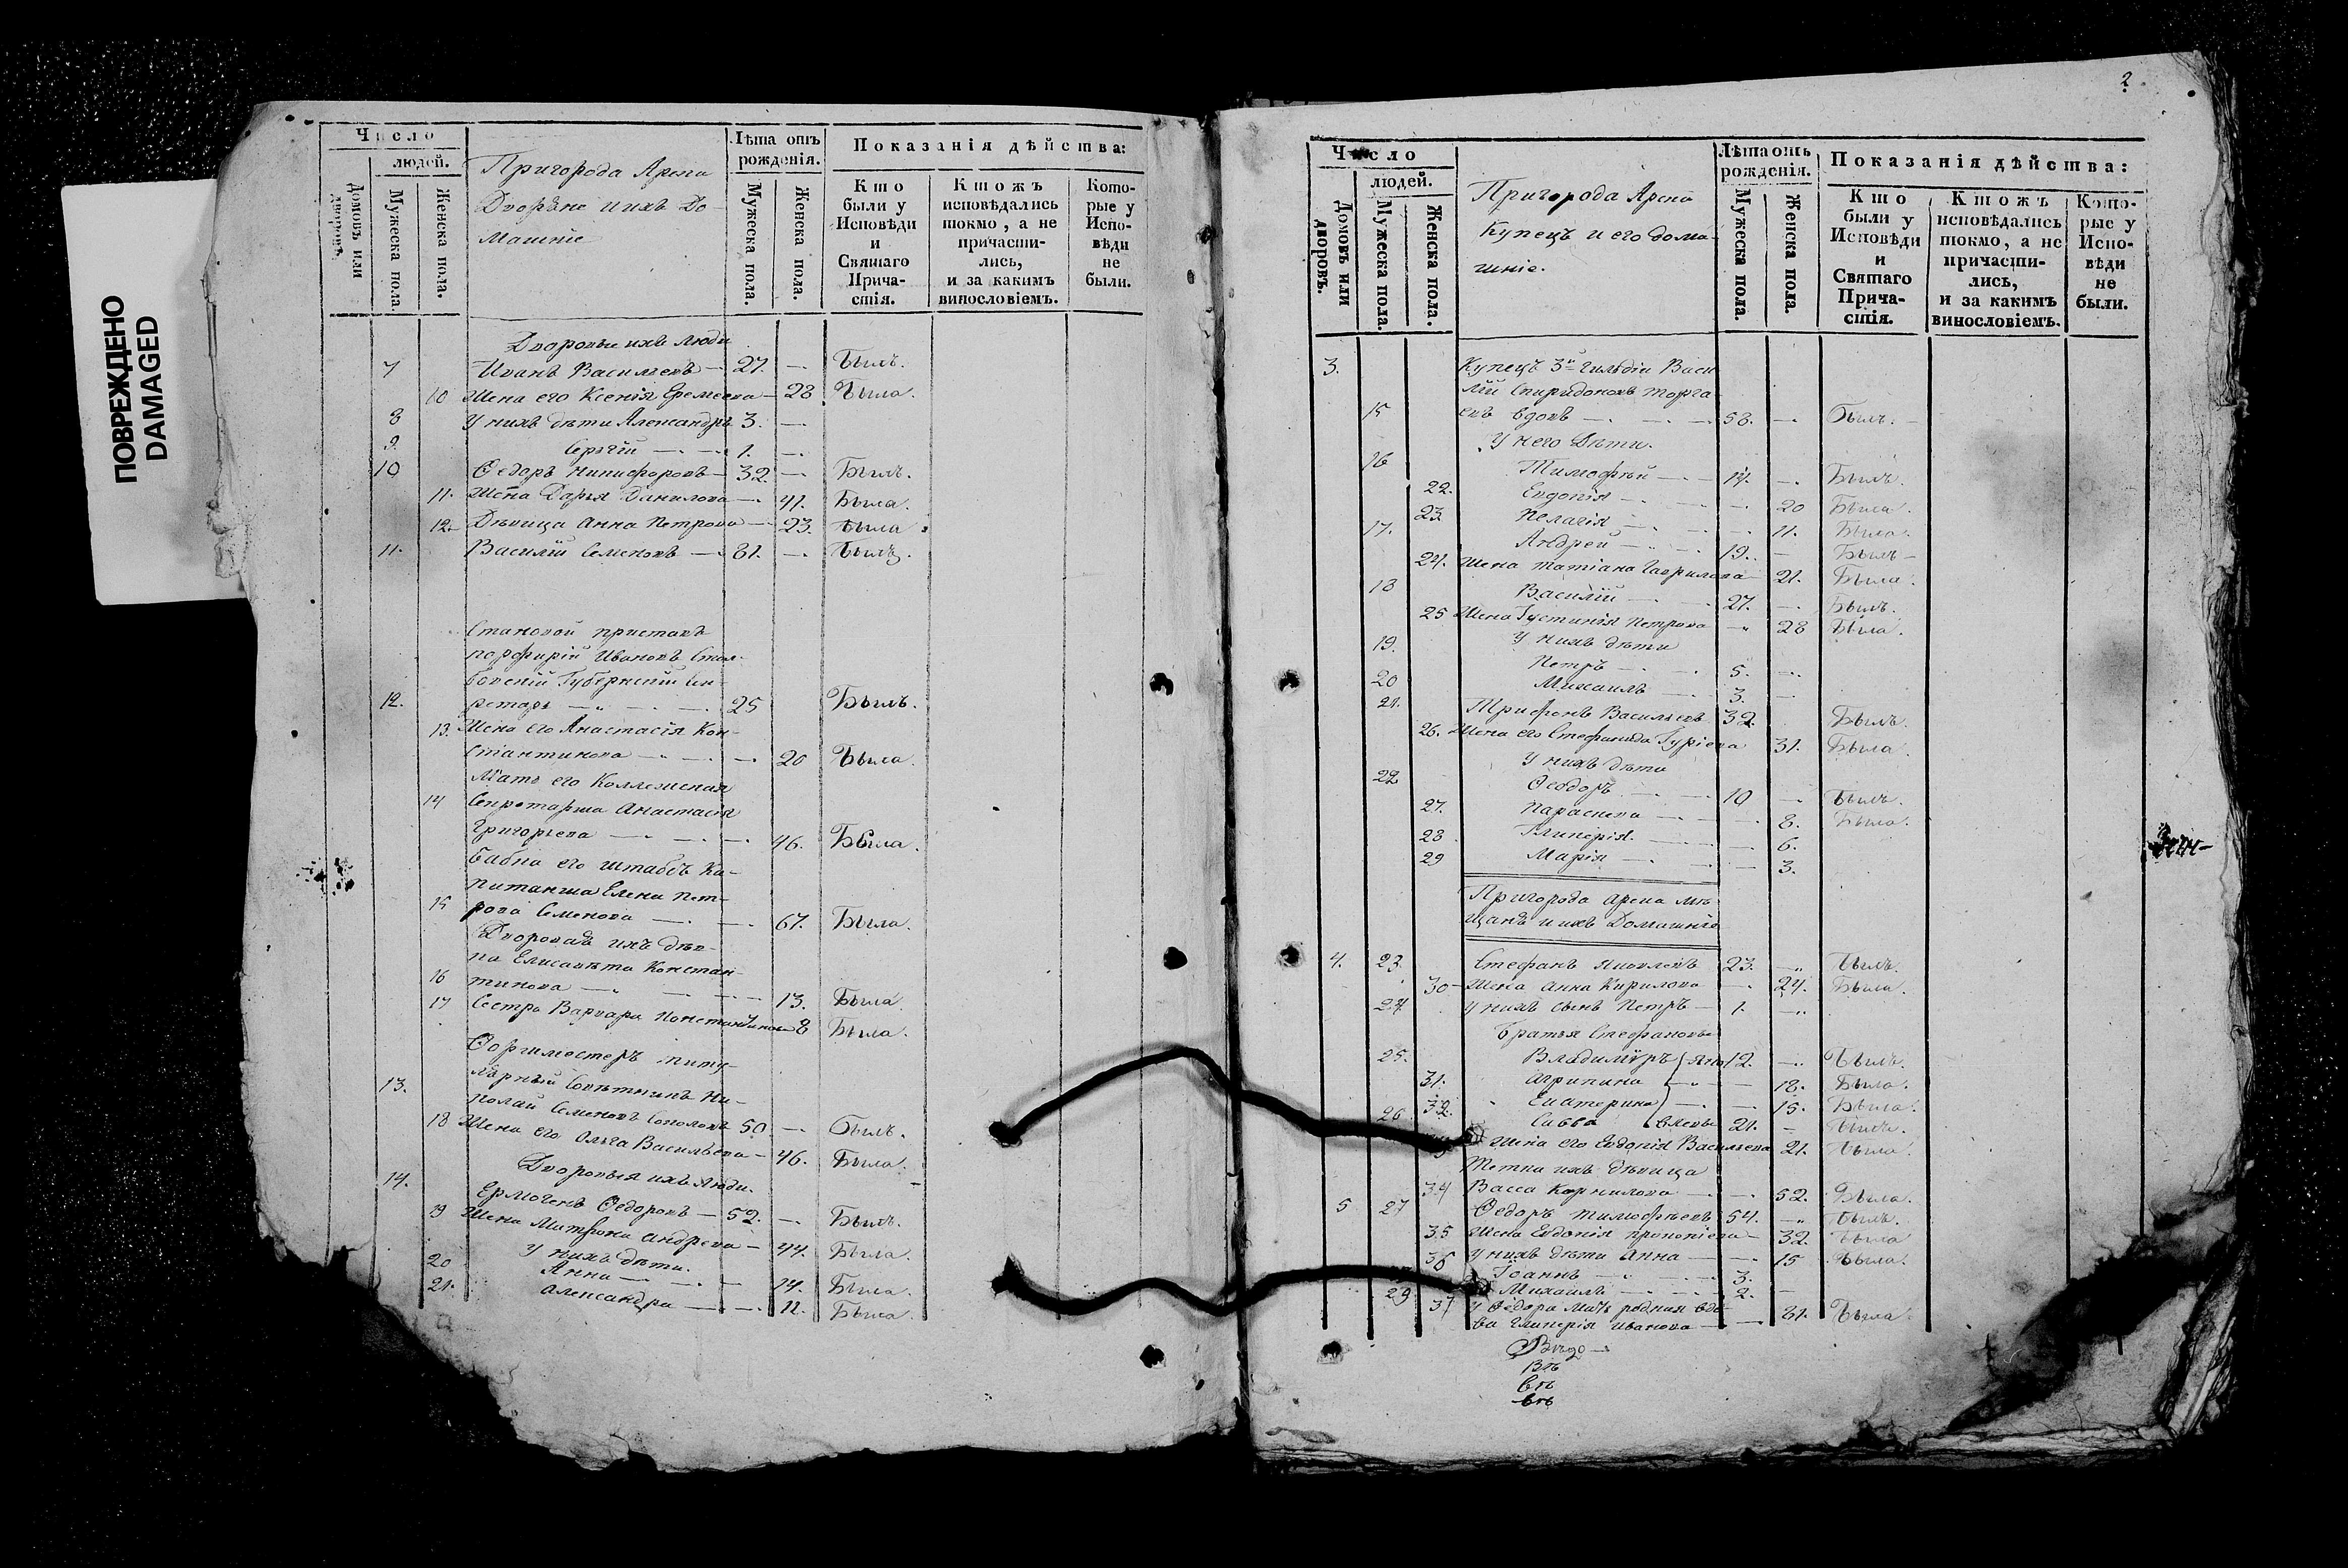 ПОВРЕЖДЕНО
DAMAGED
Число
людей.
Домовъ или дворовъ.
Мужеска пола.
Женска пола.
Пригорода Арска
Дворяне и ихъ До-
машніе
Лѣта отъ рожденія.
Мужеска пола.
Женска пола.
Показанія дѣйства:
Кто были у Исповѣди и Святаго Прича-стія.
Ктожъ исповѣдались токмо, а не причасти-лись, и за какимъ винословіемъ.
Кото-рые у Испо-вѣди не были.
Дворовые ихъ люди
7 Иванъ Васильевъ — 27. — Былъ.
10 Жена его Ксенія Еремеева — 28 Была.
8 У нихъ дѣти Александръ 3. —
9. Сергій — 1. —
10 Ѳедоръ Никифоровъ — 32. — Былъ.
11. Жена Дарья Данилова — 41. Была.
12. Дѣвица Анна Петрова — 23. Была
11. Василій Семеновъ — 81. — Былъ.
Становой приставъ
порфирій Ивановъ Стол-
бовскій Губернскій Сек-
12. ретарь — 25 Былъ.
13. Жена его Анастасія Кон-
стантинова — 20 Была.
Мать его Коллежская
14 Секретарша Анастасія
Григорьева — 46. Была.
Бабка его штабсъ Ка-
питанша Елена Пет-
15 рова Семенова — 67. Была.
Дворовая ихъ дѣв-
ка Елисавета Констан-
16 тинова — 13. Была
17 Сестра Варвара Константинова 8 Была.
Форшмостеръ титу-
лярный Совѣтникъ Ни-
13. колай Семеновъ Соколовъ 50. — Былъ.
18 Жена его Ольга Васильева — 46. Была.
Дворовыя ихъ люди.
14. Ермогенъ Ѳедоровъ — 52. — Былъ.
19 Жена Матрона Андреева — 44. Была.
У нихъ дѣти.
20 Анна — 14. Была.
21. Александра — 11. Была
2
Число
людей.
Домовъ или дворовъ.
Мужеска пола.
Женска пола.
Пригорода Арска
Купецъ и его дома-
шніе.
Лѣта отъ рожденія.
Мужеска пола.
Женска пола.
Показанія дѣйства:
Кто были у Исповѣди и Святаго Прича-стія.
Ктожъ исповѣдались токмо, а не причасти-лись, и за какимъ винословіемъ.
Кото-рые у Испо-вѣди не были.
3. Купецъ 3й Гильдіи Васи
лій Спиридоновъ
15 вдовъ — 58. — Былъ.
У него Дѣти.
16 Тимофѣй — 14. — Былъ.
22. Евдокія — 20 Была.
23. Пелагія — 11. Была.
17. Андрей — 19. — Былъ
24. Жена Татіана Гаврилова — 21. Была.
18 Василій — 27. — Былъ.
25 Жена Іустинія Петрова — 28 Была.
У нихъ дѣти
19. Петръ — 5. —
20 Михаилъ — 3. —
21. Трифонъ Васильевъ 32. Былъ.
26. Жена его Стефанида Гуріева 31. Была.
У нихъ дѣти
22 Ѳеодоръ — 10 — Былъ.
27. Параскева — 8. Была.
28 Гликерія — 6.
29 Марія — 3.
Пригорода Арска мѣ-
щанъ и ихъ Домашніе
4. 23. Стефанъ Яковлевъ 23. — Былъ.
30 Жена Анна Кирилова — 24. Была.
24 У нихъ сынъ Петръ — 1. —
Братья Стефановы
25. Владимуръ 12. — Былъ.
31. Агрипина — 18. Была.
32. Екатерина — 15. Была.
26 Савва 21. — Былъ.
Жена его Евдокія Васильева 21. Была.
Тетка ихъ дѣвица
34 Васса Корнилова — 52. Была.
5 27 Ѳедоръ Тимофѣевъ 54. — Былъ.
35 Жена Евдокія Прокопіева — 32. Была
36 У нихъ дѣти Анна — 15 Была.
Іоаннъ — 3.
29 Михаилъ — 2. —
37 У Ѳедора мать родная вдо-
ва Гликерія Иванова — 81. Была.
Въ
въ
въ